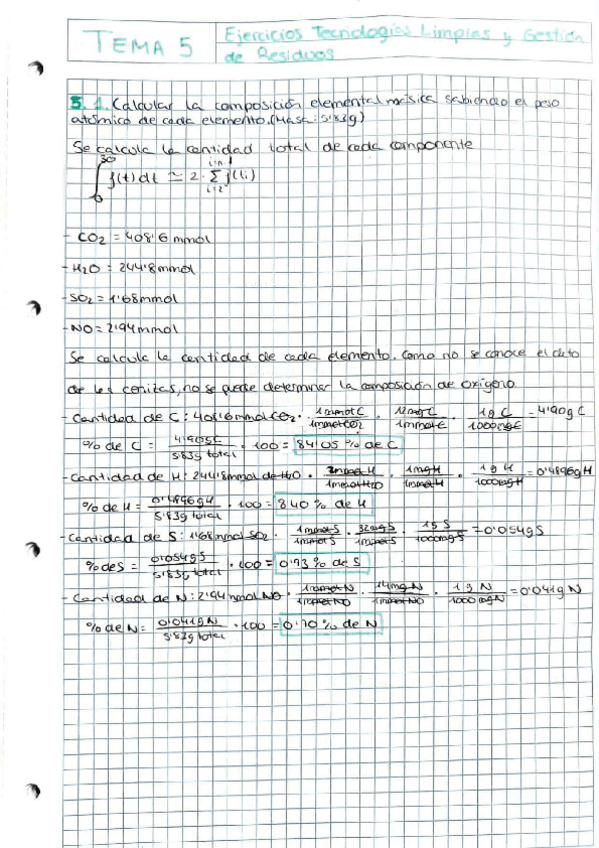 TEMA 5
Ejercicios Tecnologías Limpias y Gestión
de Residuos
5.1. Calcular la composición elemental másica sabiendo el peso
atómico de cada elemento. (Masa: 5'83g)
Se calcula la cantidad total de cada componente
∫₀³⁰ f(t)dt ≃ 2·Σ f(ti)
- CO2 = 408'6 mmol
- H2O = 244'8 mmol
- SO2 = 1'68 mmol
- NO = 2'94 mmol
Se calcula la cantidad de cada elemento. Como no se conoce el dato
de las cenizas, no se puede determinar la composición de oxígeno
- Cantidad de C: 408'6 mmol CO2 · 1 mmol C / 1 mmol CO2 · 12 mg C / 1 mmol C · 1 g C / 1000 mg C = 4'90 g C
% de C = 4'905C / 5'83g total · 100 = 84'05 % de C
- Cantidad de H: 244'8 mmol de H2O · 2 mmol H / 1 mmol H2O · 1 mg H / 1 mmol H · 1 g H / 1000 mg H = 0'4896 g H
% de H = 0'4896 g H / 5'83 g total · 100 = 8'40 % de H
- Cantidad de S: 1'68 mmol SO2 · 1 mmol S / 1 mmol S · 32 mg S / 1 mmol S · 1 g S / 1000 mg S = 0'054 g S
% de S = 0'054 g S / 5'83 g total · 100 = 0'93 % de S
- Cantidad de N: 2'94 mmol NO · 1 mmol N / 1 mmol NO · 14 mg N / 1 mmol NO · 1 g N / 1000 mg N = 0'041 g N
% de N = 0'041 g N / 5'83 g total · 100 = 0'70 % de N